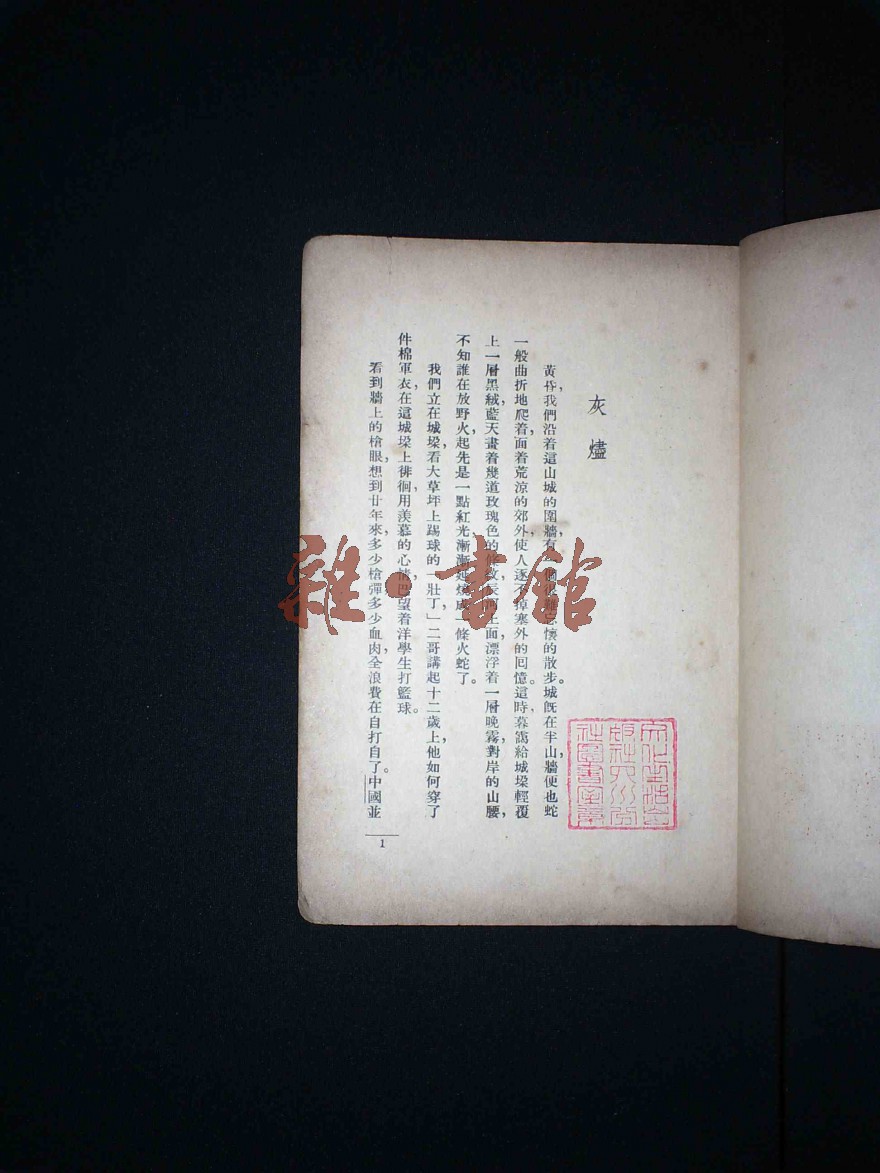 灰燼
黃昏，我們沿着這山城的圍牆，有一個很難忘懷的散步。城旣在半山，牆便也蛇
一般曲折地爬着，面着荒涼的郊外，使人逐不掉塞外的回憶。這時，暮靄給城垛輕覆
上一層黑絨，藍天畫着幾道玫瑰色的條紋，長河上面漂浮着一層晚霧，對岸的山腰，
不知誰在放野火，起先是一點紅光，漸漸延燒成一條火蛇了。
我們立在城垛，看大草坪上踢球的「壯丁」二哥講起十二歲上，他如何穿了
件棉軍衣，在這城垛上徘徊，用羨慕的心情巴望着洋學生打籃球。
看到牆上的槍眼，想到廿年來，多少槍彈多少血肉，全浪費在自打自了。中國並
1
雜·書館
文化生活出
版社六川分
社圖書室章